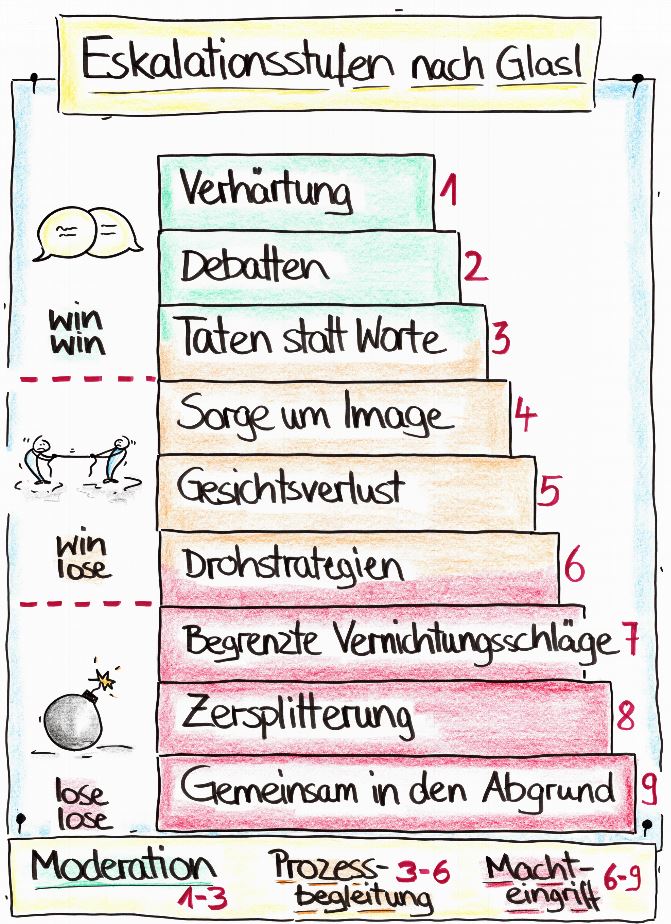 Eskalationsstufen nach Glasl
Verhärtung 1
Debatten 2
win
win
Taten statt Worte 3
Sorge um Image 4
Gesichtsverlust 5
win
lose
Drohstrategien 6
Begrenzte Vernichtungsschläge 7
Zersplitterung 8
lose
lose
Gemeinsam in den Abgrund 9
Moderation
1-3
Prozess- 3-6
begleitung
Macht- 6-9
eingriff